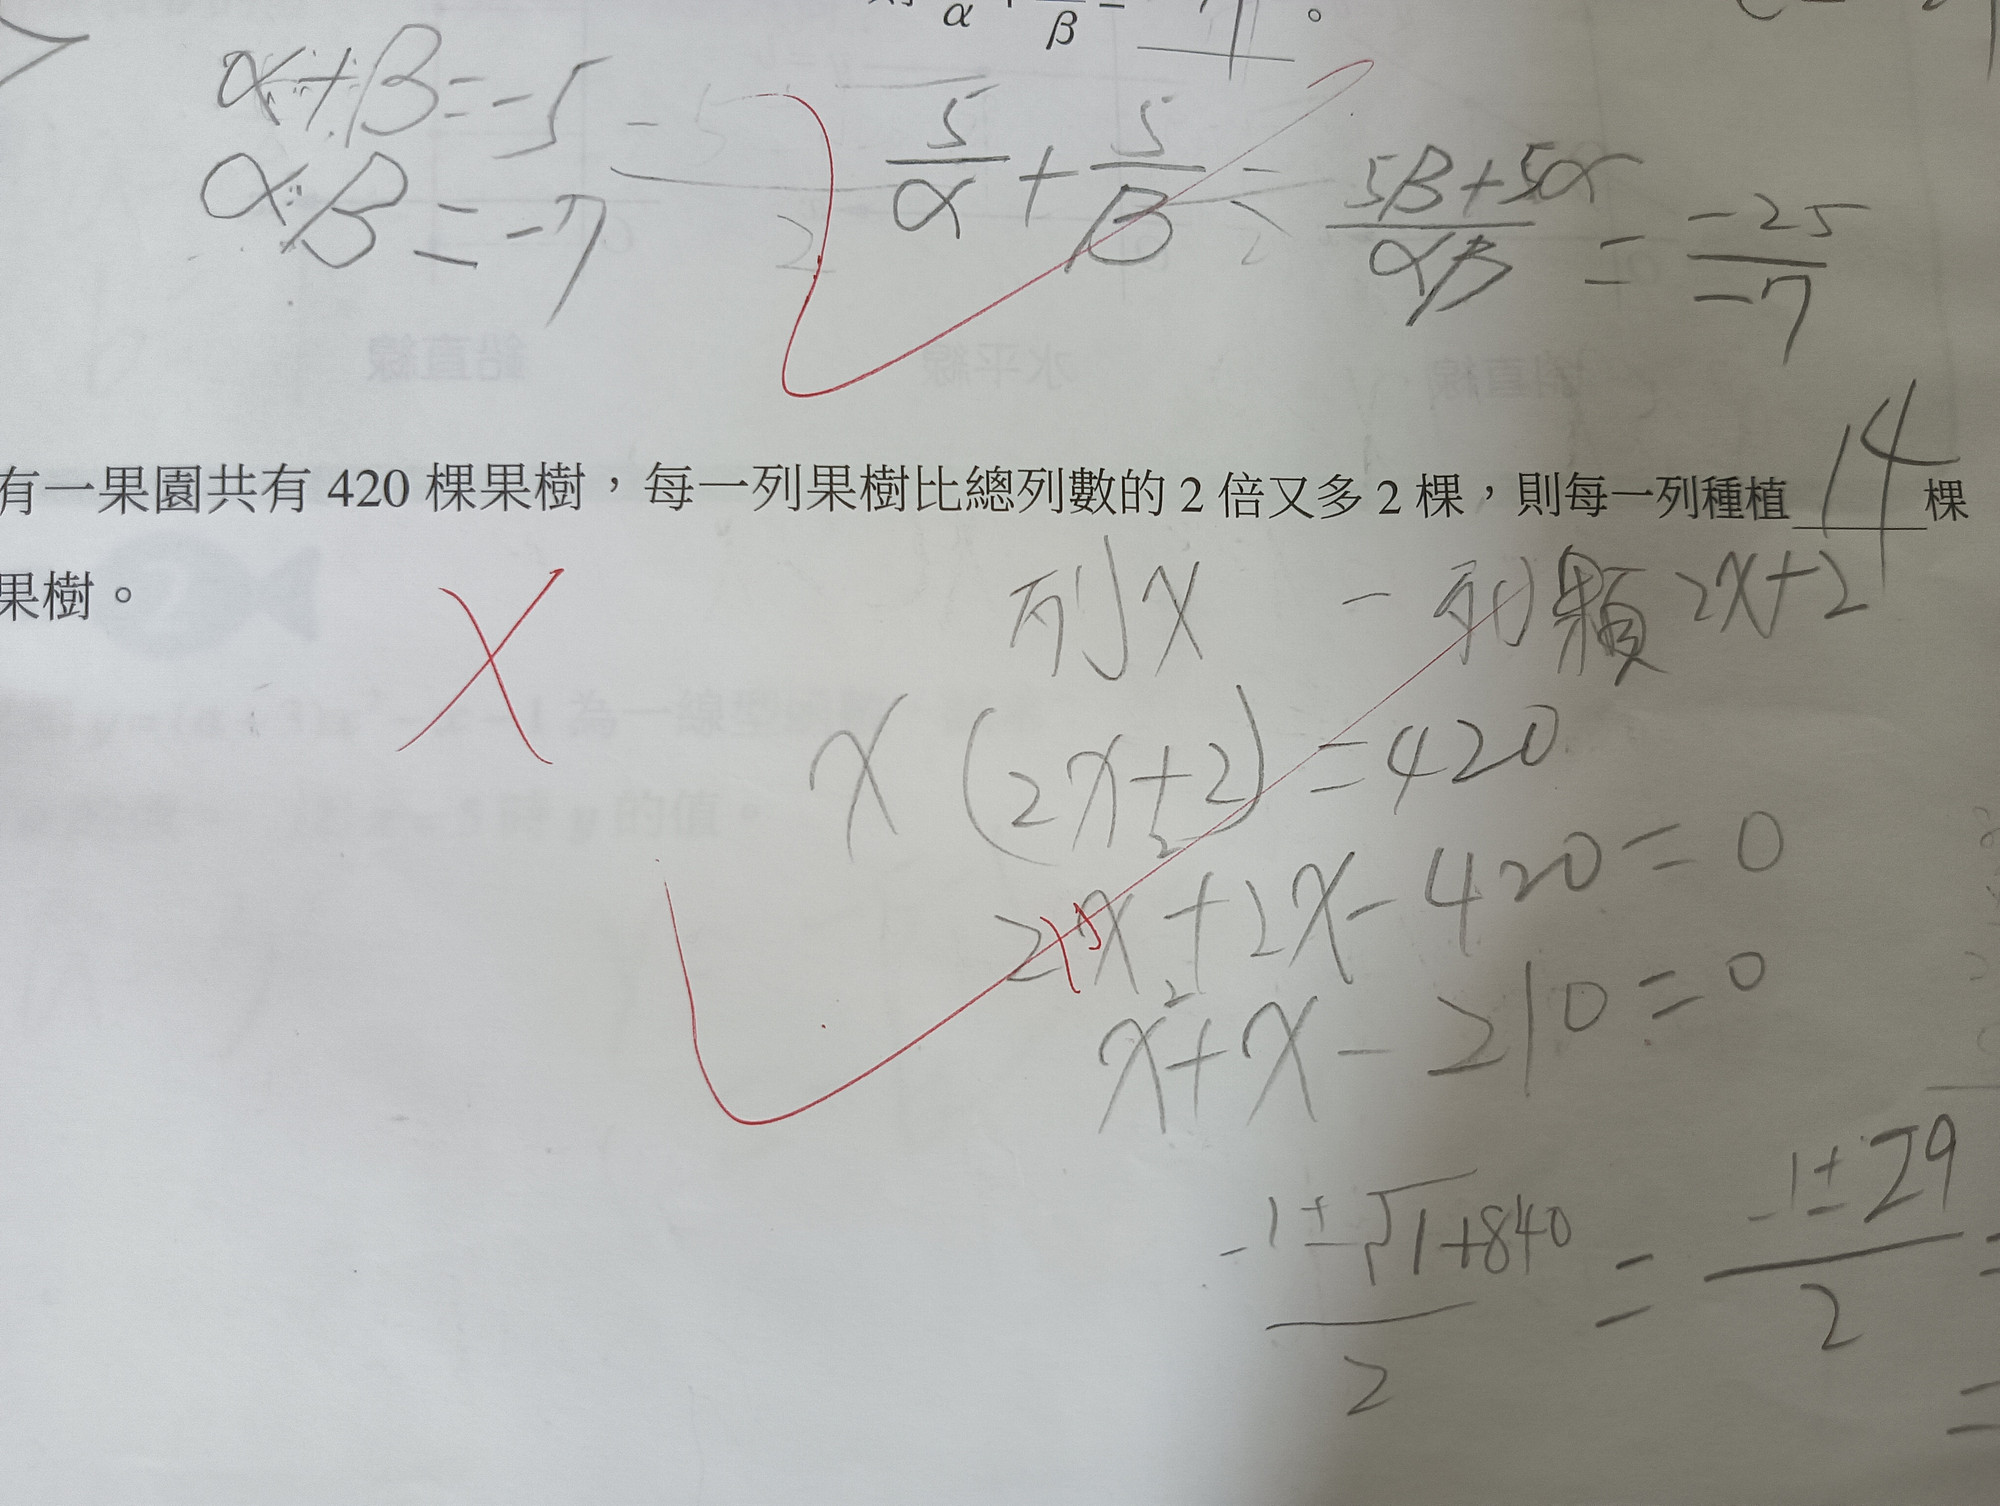 α β = 。
α+β=-5
αβ=-7
5/α + 5/β = (5β+5α)/αβ = -25/-7
有一果園共有 420 棵果樹，每一列果樹比總列數的 2 倍又多 2 棵，則每一列種植 14 棵
果樹。
列x 一列顆 2x+2
x(2x+2)=420
2x²+2x-420=0
x²+x-210=0
(-1±√1+840)/2 = (-1±29)/2 =
=